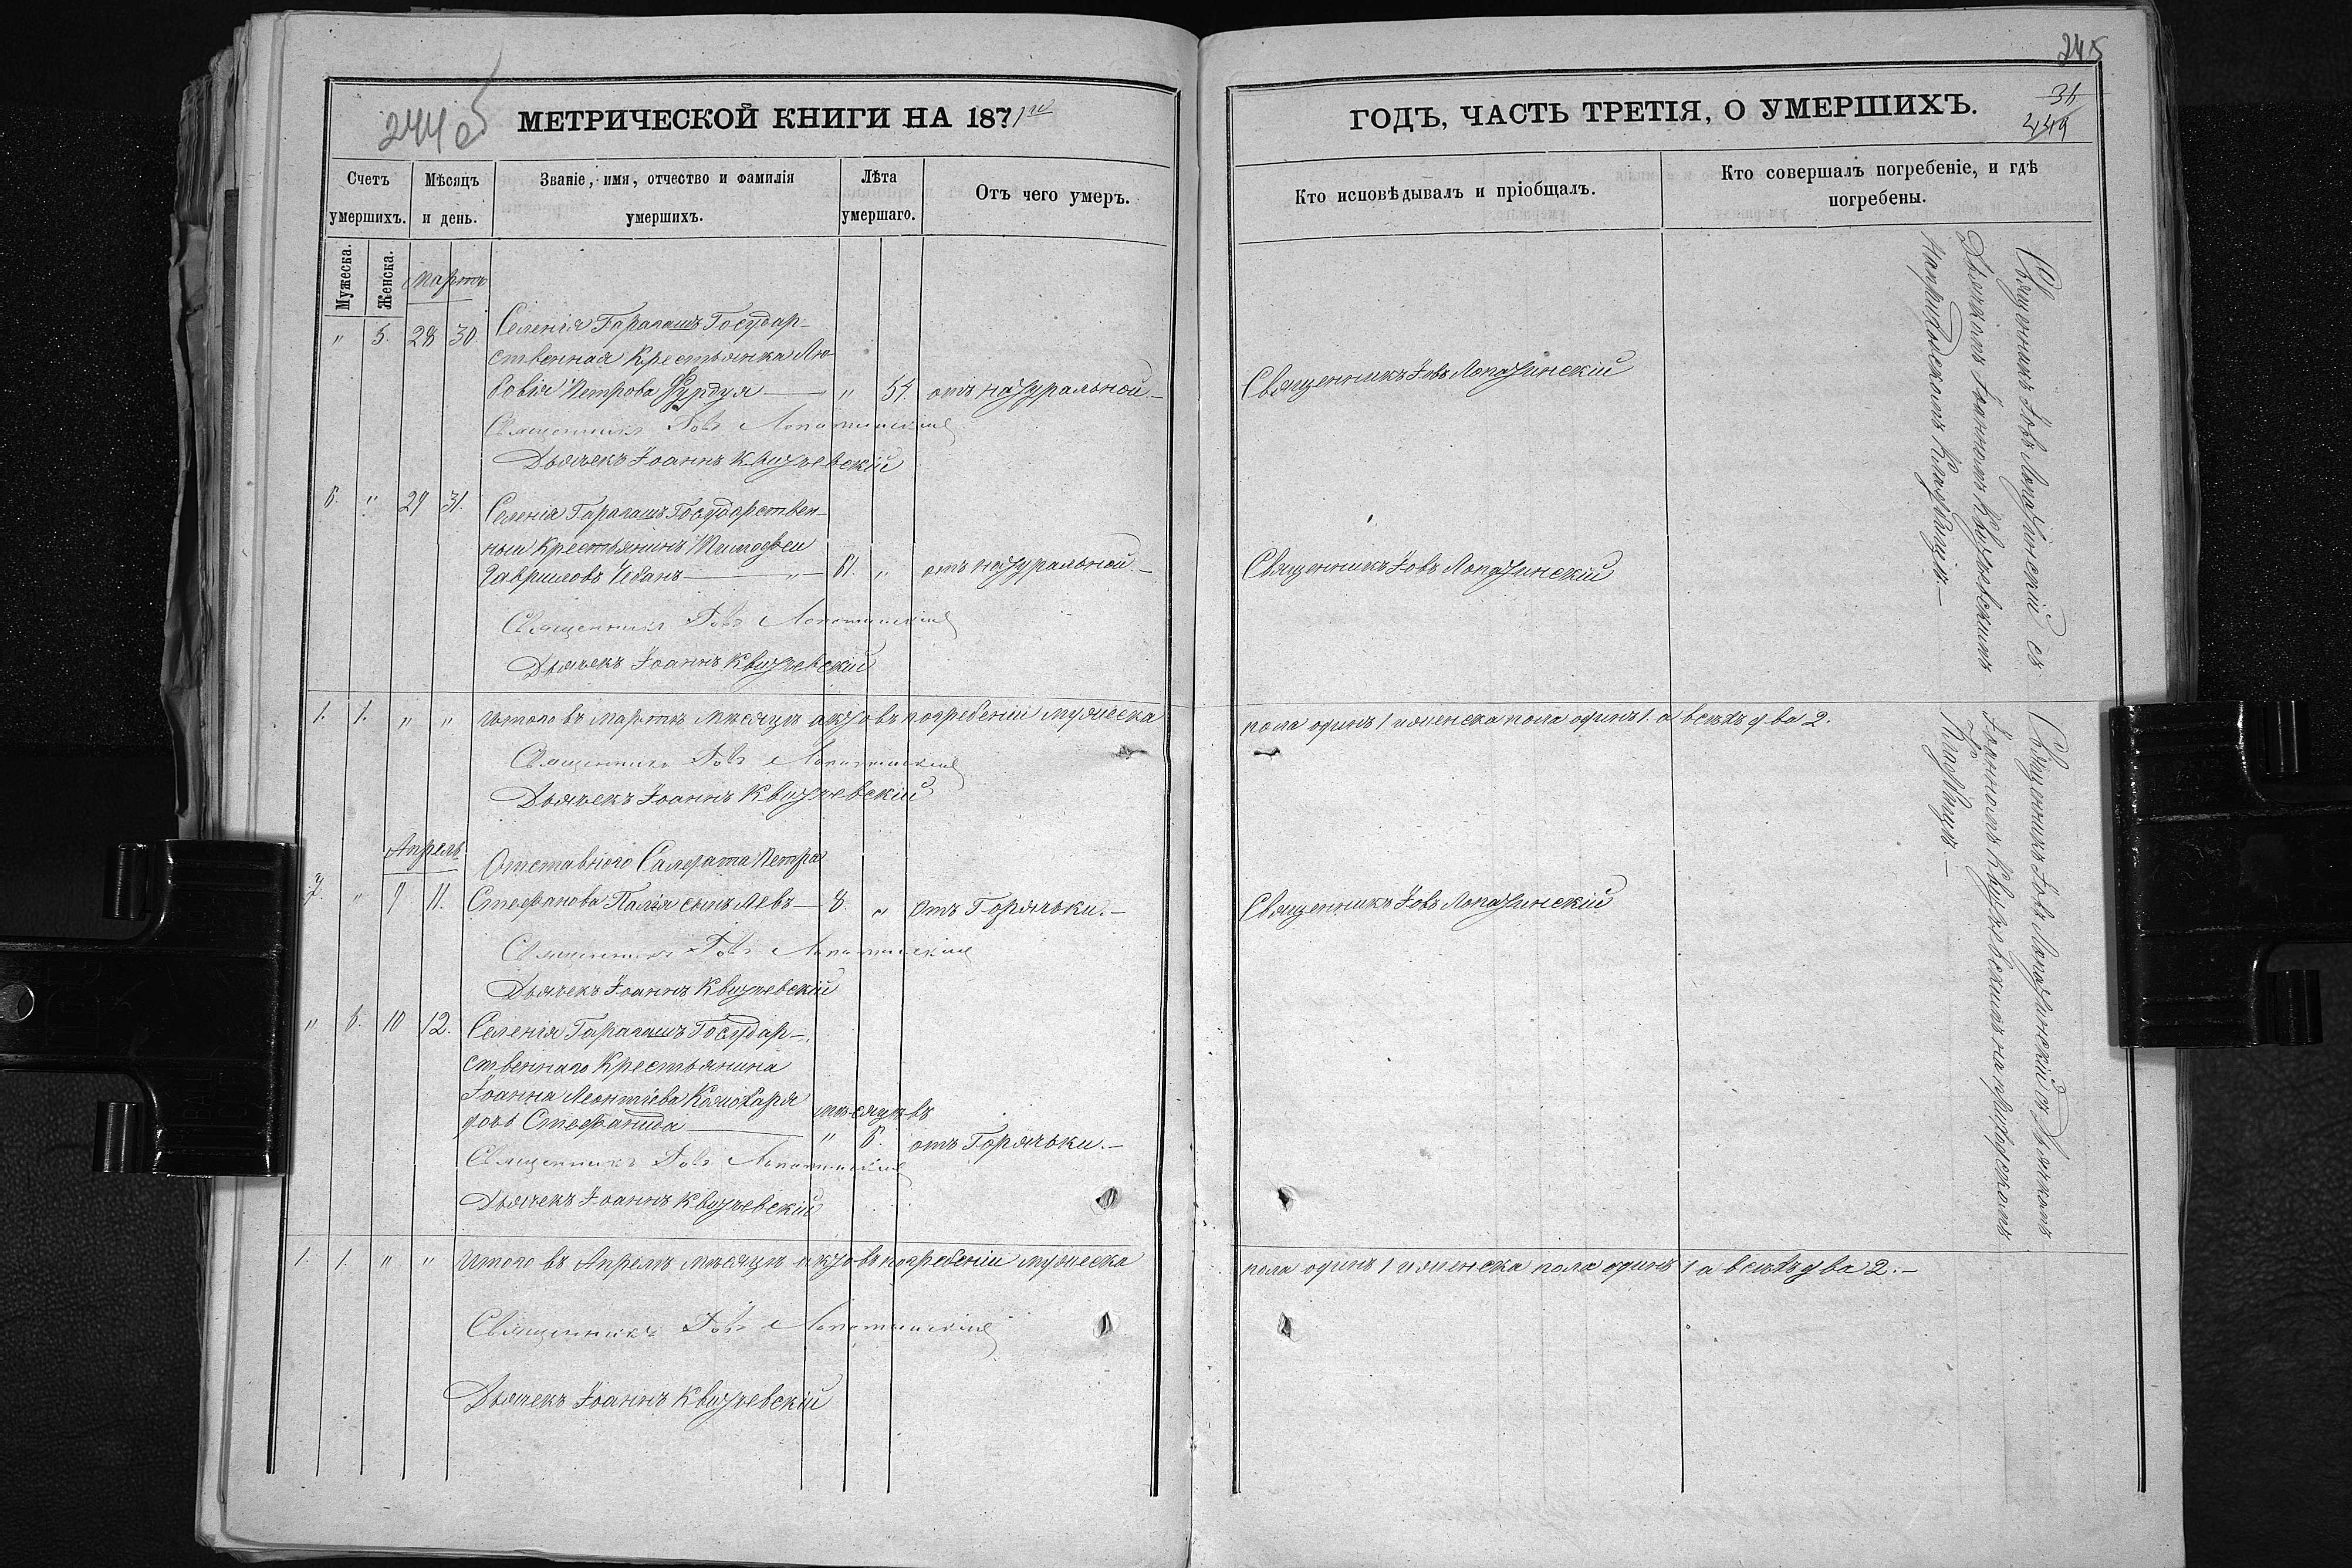 244 об
МЕТРИЧЕСКОЙ КНИГИ НА 1871й
Счетъ умершихъ.
Мѣсяцъ и день.
Званіе, имя, отчество и фамилія умершихъ.
Лѣта умершаго.
Отъ чего умеръ.
Мужеска.
Женска.
Мартъ
" 5. 28 30. Селенія Гарагашъ Государ-
ственная Крестьянка Лю-
бовія Петрова Фурдуя — " 54. отъ натуральной.—
Священникъ Іовъ Лопатинскій
Дьячекъ Іоаннъ Квитчевскій
6. " 29 31. Селенія Гарагашъ Государствен-
ный Крестьянинъ Тимофей
Гавриловъ Чебанъ — 61. " отъ натуральной.—
Священникъ Іовъ Лопатинскій
Дьячекъ Іоаннъ Квитчевскій
1. 1. " " Итого въ Мартѣ мѣсяцѣ актовъ погребеній мужеска
Священникъ Іовъ Лопатинскій
Дьячекъ Іоаннъ Квитчевскій
Апрель
Отставного Солдата Петра
7. " 9 11. Стефанова Палія сынъ Левъ — 8. " Отъ Горячьки.—
Священникъ Іовъ Лопатинскій
Дьячекъ Іоаннъ Квитчевскій
" 6. 10 12. Селенія Гарагашъ Государ-
ственнаго Крестьянина
Іоанна Леонтіева
дочь Стефанида — мѣсяцевъ " 6. отъ Горячьки.—
Священникъ Іовъ Лопатинскій
Дьячекъ Іоаннъ Квитчевскій
1. 1. " " Итого въ Апрелѣ мѣсяцѣ актовъ погребеній мужеска
Священникъ Іовъ Лопатинскій
Дьячекъ Іоаннъ Квитчевскій
245
31
449
ГОДЪ, ЧАСТЬ ТРЕТІЯ, О УМЕРШИХЪ.
Кто исповѣдывалъ и пріобщалъ.
Кто совершалъ погребеніе, и гдѣ
погребены.
Священникъ Іовъ Лопатинскій
Священникъ Іовъ Лопатинскій
Священникъ Іовъ Лопатинскій съ
Дьячкомъ Іоанномъ Квитчевскимъ
на приходскомъ Кладбищѣ.—
пола одинъ 1 и женска пола одинъ 1. а всехъ два 2.
Священникъ Іовъ Лопатинскій
Священникъ Іовъ Лопатинскій съ Дьячкомъ
Іоанномъ Квитчевскимъ на приходскомъ
Кладбищѣ.—
пола одинъ 1 и женска пола одинъ 1 а всехъ два 2.—